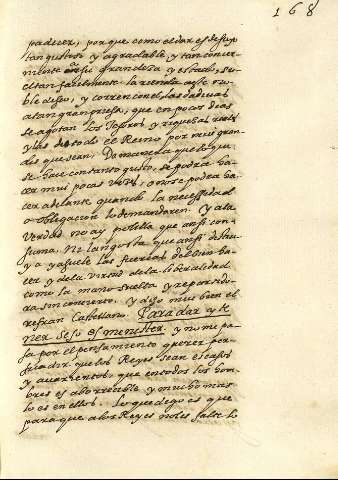 168
padecer, porque como el dar es de suyo
tan gustoso y agradable, y tan conver-
niente a su grandeza y estado, suel-
tan facilmente la rienda a esse no-
ble deseo, y corren con el, las dadiuas
a tan gran priesa, que en pocos dias
se agotan los Tesoros y riquezas reales
y las de todo el Reino por muy gran-
des que sean. De manera que lo que
se haze con tanto gusto, se podra ha-
cer muy pocas veces, o no se podra ha-
cer adelante quando la necessidad
o obligacion lo demandaren. Y a la
verdad no ay polilla que ansi con-
suma. Ni langosta que ansi destru-
ya y assuele las fuerzas del bien ha-
cer y de la virtud de la liberalidad
como la mano suelta y repartido-
ra sin concierto. Y dijo muy bien el
refran Castellano. Para dar y te-
ner seso es menester. y no me pa-
sa por el pensamiento querer per-
suadir que los Reyes sean escasos
y auarientos, que en todos los hom-
bres es aborrecible y mucho mas
lo es en ellos. Lo que digo es que
para que a los Reyes no les falte lo